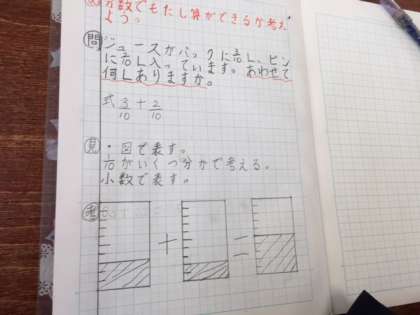 分数でもたし算ができるか考え
よう。
問 ジュースがパックに3/10L、ビン
に2/10L入っています。あわせて
何Lありますか。
式 3/10 + 2/10
見 ・図で表す。
1/10がいくつ分かで考える。
小数で表す。
考
+ =